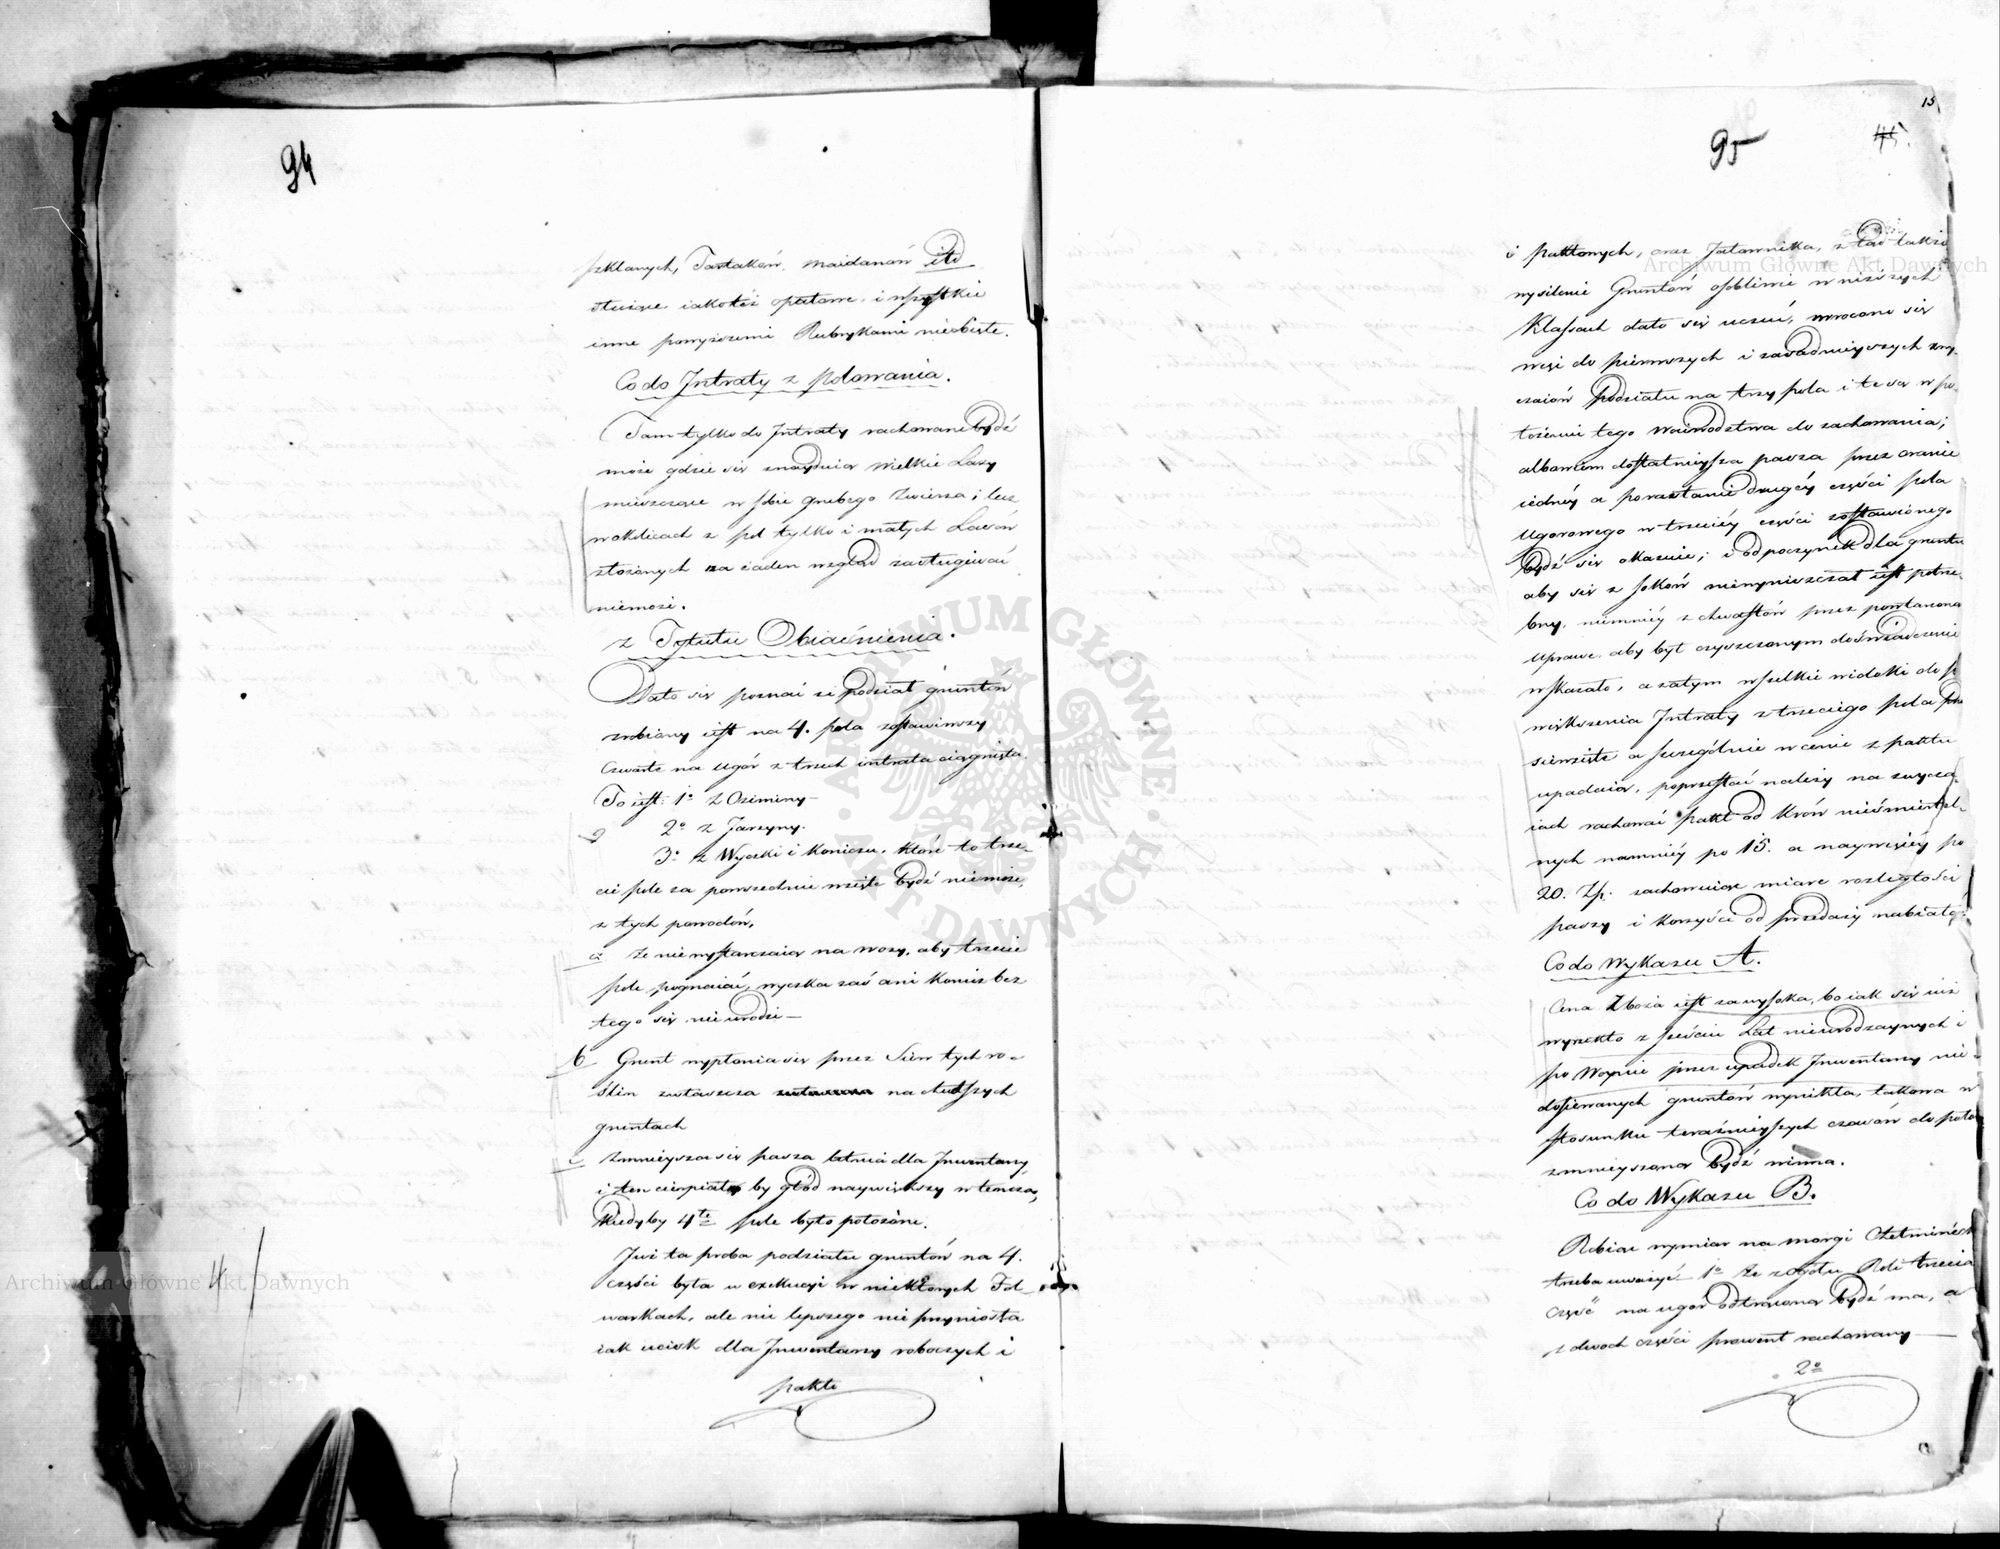 94
szklanych, Tartaków, maidanów itd
służące iakoteż opałowe, i wszystkie
inne powyższemi Rubrykami nieobięte.
Co do Intraty z polowania.
Tam tylko do Intraty rachowane bydź
może gdzie się znayduią wielkie Lasy
mieszczące w sobie grubego Zwierza; lecz
w okolicach z pól tylko i małych Lasów
złożonych na żaden wzgląd zasługiwać
niemoże.
z Tytułu Obiaśnienia.
Dało się poznać że podział gruntów
zrobiony iest na 4. pola zostawiwszy
Czwarte na ugór z trzech intrata ciągnięta.
To iest: 1o z Oziminy
2o z Jarzyny.
3o z Wyczki i Koniczu, które to trze-
cie pole za powszechnie wzięte bydź niemoże,
z tych powodów,
a że nie wystarczaią na wozy, aby trzecie
pole pognoiać, wyczka zaś ani Konicz bez
tego się nie urodzi —
b Grunt wypłonia się przez Siew tych ro-
ślin zwłaszcza na chudszych
gruntach
c Zmnieysza się pasza letnia dla Inwentarzy
i ten cierpiałby głód naywiększy w tenczas,
Kiedyby 4te pole było położone.
Już ta proba podziału gruntów na 4.
części była w exekucyi w niektórych Fol-
warkach, ale nic lepszego nie przyniosła
iak ucisk dla Inwentarzy roboczych i
pakto
4
15
95
45.
i paktowych, oraz Jałownika, z tąd także
wysilenie Gruntów osobliwie w niższych
Klassach dało się uczuć, wrocono się
więc do pierwszych i zasadnieyszych zwy-
czaiów podziału na trzy pola i te są w po-
łożeniu tego Woiewodztwa do zachowania;
albowiem dostatnieysza pasza przez oranie
iedney a porastanie drugiéy części pola
Ugorowego w trzeciéy części zostawionego
bydź się okazuie; i odpoczynek dla gruntu
aby się z soków niewyniszczał iest potrze-
bny, niemniéy z chwastów przez powtarzoną
uprawę aby był czyszczonym doświadczenie
wskazało, a zatym wszelkie widoki do po
większenia Intraty z trzeciego pola prze
sięwzięte a szczególnie w cenie z paktu
upadaią, poprzestać należy na zwycza-
iach rachować pakt od Krów nieśmiertel-
nych namniéy po 15. a naywięcéy po
20. Zł. zachowuiąc miarę rozległości
paszy i korzyści od przedaży nabiału.
Co do Wykazu A.
Cena Zboża iest zawysoka, bo iak się iuż
wyrzekło z sześciu Lat nieurodzaynych i
po Woynie przez upadek Inwentarzy nie-
dosiewanych gruntów wynikła, takowa w
stosunku teraźnieyszych czasów do poło
zmnieyszona bydź winna.
Co do Wykazu B.
Robiąc wymiar na morgi Chełmińsk
trzeba uważyć 1o że z ogółu Roli trzecia
część na ugór odtrącona bydź ma, a
z dwoch części prowent rachowany —
2o